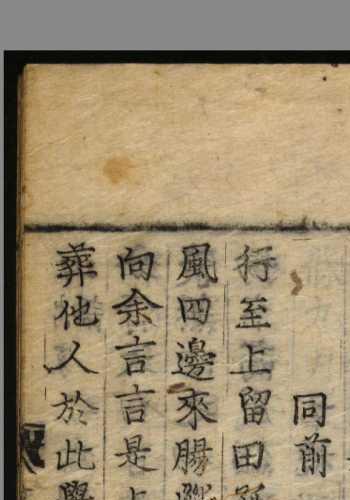 同前
行至上留田
風四邊來腸
向余言言是
葬他人於此